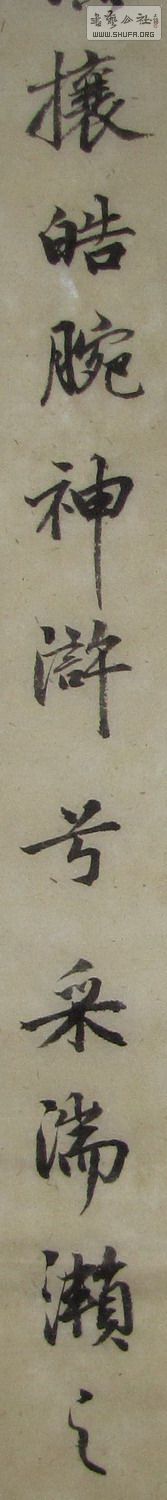 書藝公社
WWW.SHUFA.ORG
攘皓腕神滸兮采湍瀨之